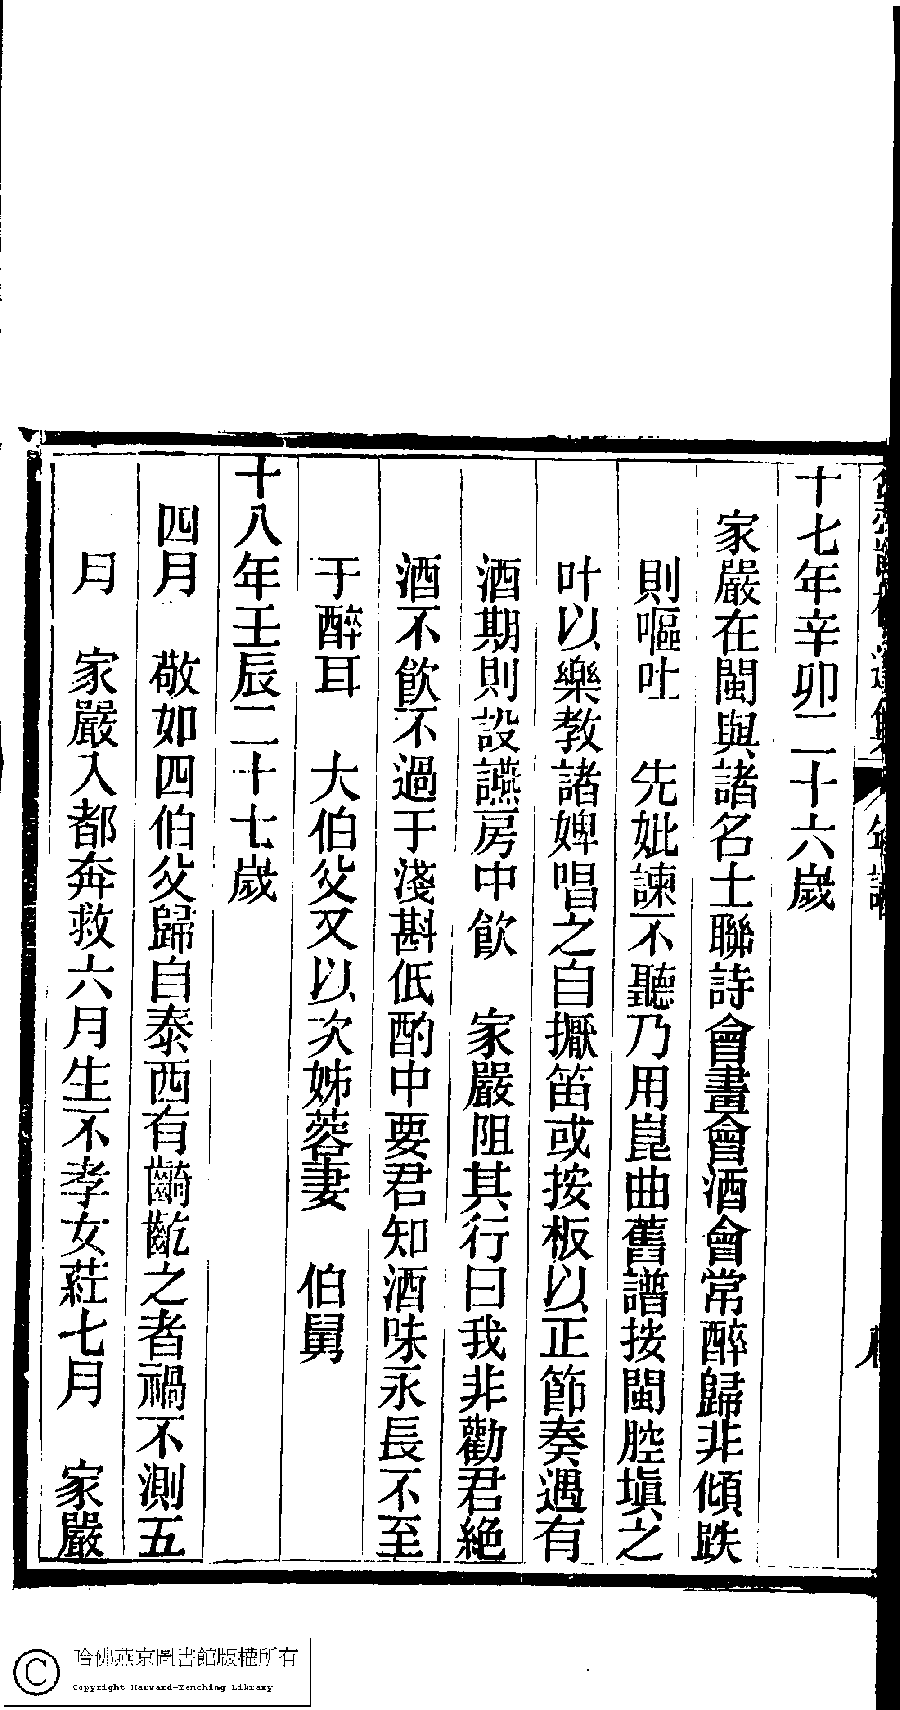 十七年辛卯二十六歲
家嚴在閩與諸名士聯詩會畫會酒會常醉歸非傾跌
則嘔吐　先妣諫不聽乃用崑曲舊譜按閩腔塡之
叶以樂教諸婢唱之自擫笛或按板以正節奏遇有
酒期則設讌房中飮　家嚴阻其行曰我非勸君絶
酒不飮不過于淺斟低酌中要君知酒味永長不至
于醉耳　大伯父又以次姊蓉妻　伯舅
十八年壬辰二十七歲
四月　敬如四伯父歸自泰西有齮齕之者禍不測五
月　家嚴入都奔救六月生不孝女葒七月　家嚴
年譜
哈佛燕京圖書館版權所有
Copyright Harvard-Yenching Library